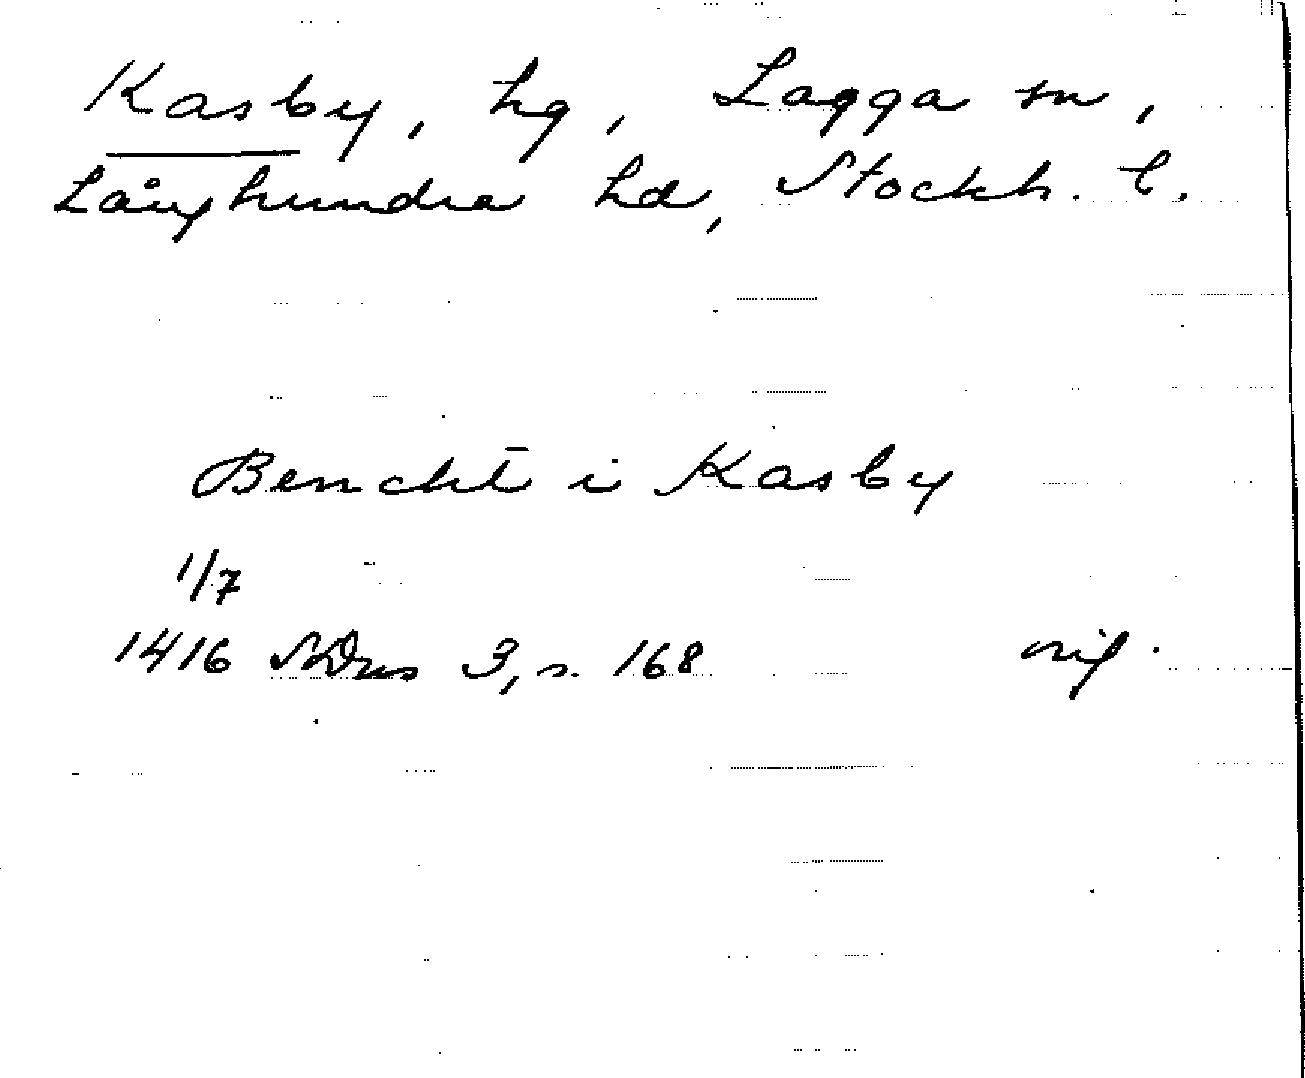 Kasby, hg, Lagga sn,
Långhundra hd, Stockh. l.
Bencht i Kasby
1/7
1416 SDns 3, s. 168